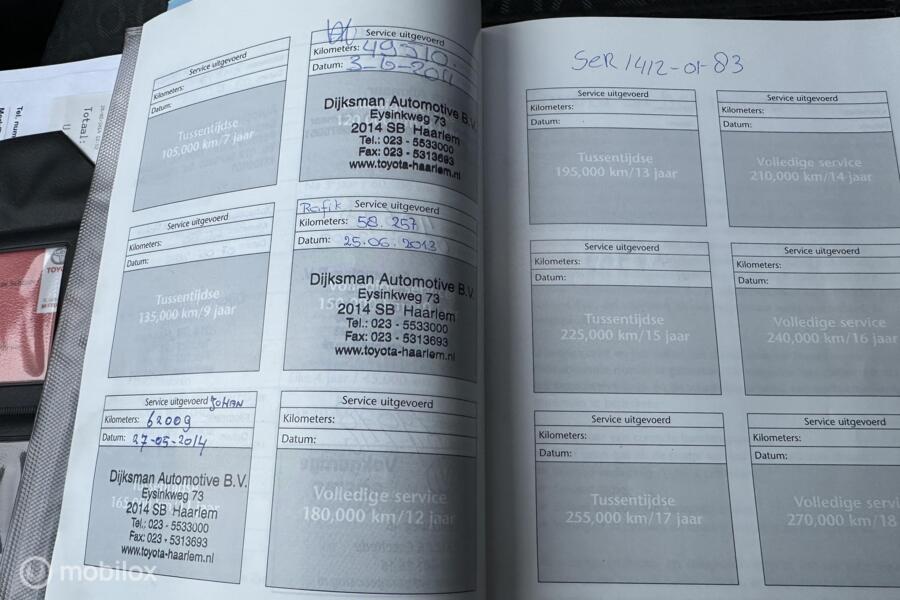 Totaal:
TOYO
Service uitgevoerd
Kilometers:
Datum:
Tussentijdse
105,000 km/7 jaar
Service uitgevoerd
Kilometers: 49310.
Datum: 3-6-2011
Dijksman Automotive B.V.
Eysinkweg 73
2014 SB Haarlem
Tel.: 023 - 5533000
Fax: 023 - 5313693
www.toyota-haarlem.nl
Service uitgevoerd
Kilometers:
Datum:
Tussentijdse
135,000 km/9 jaar
Rafik Service uitgevoerd
Kilometers: 58.257
Datum: 25.06.2013
Dijksman Automotive B.V.
Eysinkweg 73
2014 SB Haarlem
Tel.: 023 - 5533000
Fax: 023 - 5313693
www.toyota-haarlem.nl
Service uitgevoerd JOHAN
Kilometers: 62009
Datum: 27-05-2014
Dijksman Automotive B.V.
Eysinkweg 73
2014 SB Haarlem
Tel.: 023 - 5533000
Fax: 023 - 5313693
www.toyota-haarlem.nl
Service uitgevoerd
Kilometers:
Datum:
Volledige service
180,000 km/12 jaar
SER1412-01-83
Service uitgevoerd
Kilometers:
Datum:
Tussentijdse
195,000 km/13 jaar
Service uitgevoerd
Kilometers:
Datum:
Volledige service
210,000 km/14 jaar
Service uitgevoerd
Kilometers:
Datum:
Tussentijdse
225,000 km/15 jaar
Service uitgevoerd
Kilometers:
Datum:
Volledige service
240,000 km/16 jaar
Service uitgevoerd
Kilometers:
Datum:
Tussentijdse
255,000 km/17 jaar
Service uitgevoerd
Kilometers:
Datum:
Volledige servi
270,000 km/18
mobilox